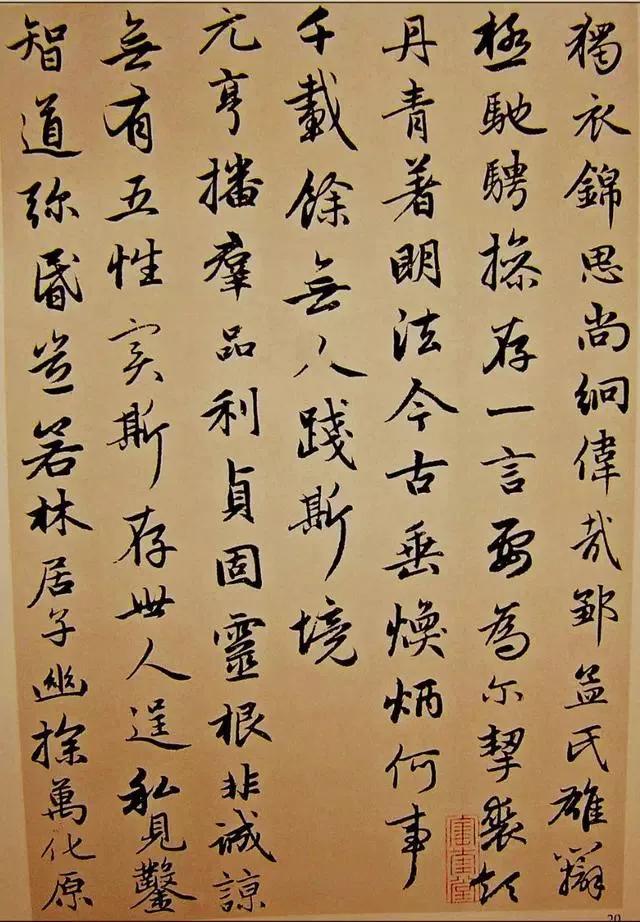 獨衣錦思尚絅偉哉鄒孟氏雄辯
極馳騁操存一言要為尔挈裘領
丹青著眀法今古垂煥炳何事
千載餘無人踐斯境
元亨播羣品利貞固靈根非誠諒
無有五性实斯存世人逞私見鑿
智道弥昏豈若林居子幽探萬化原
20